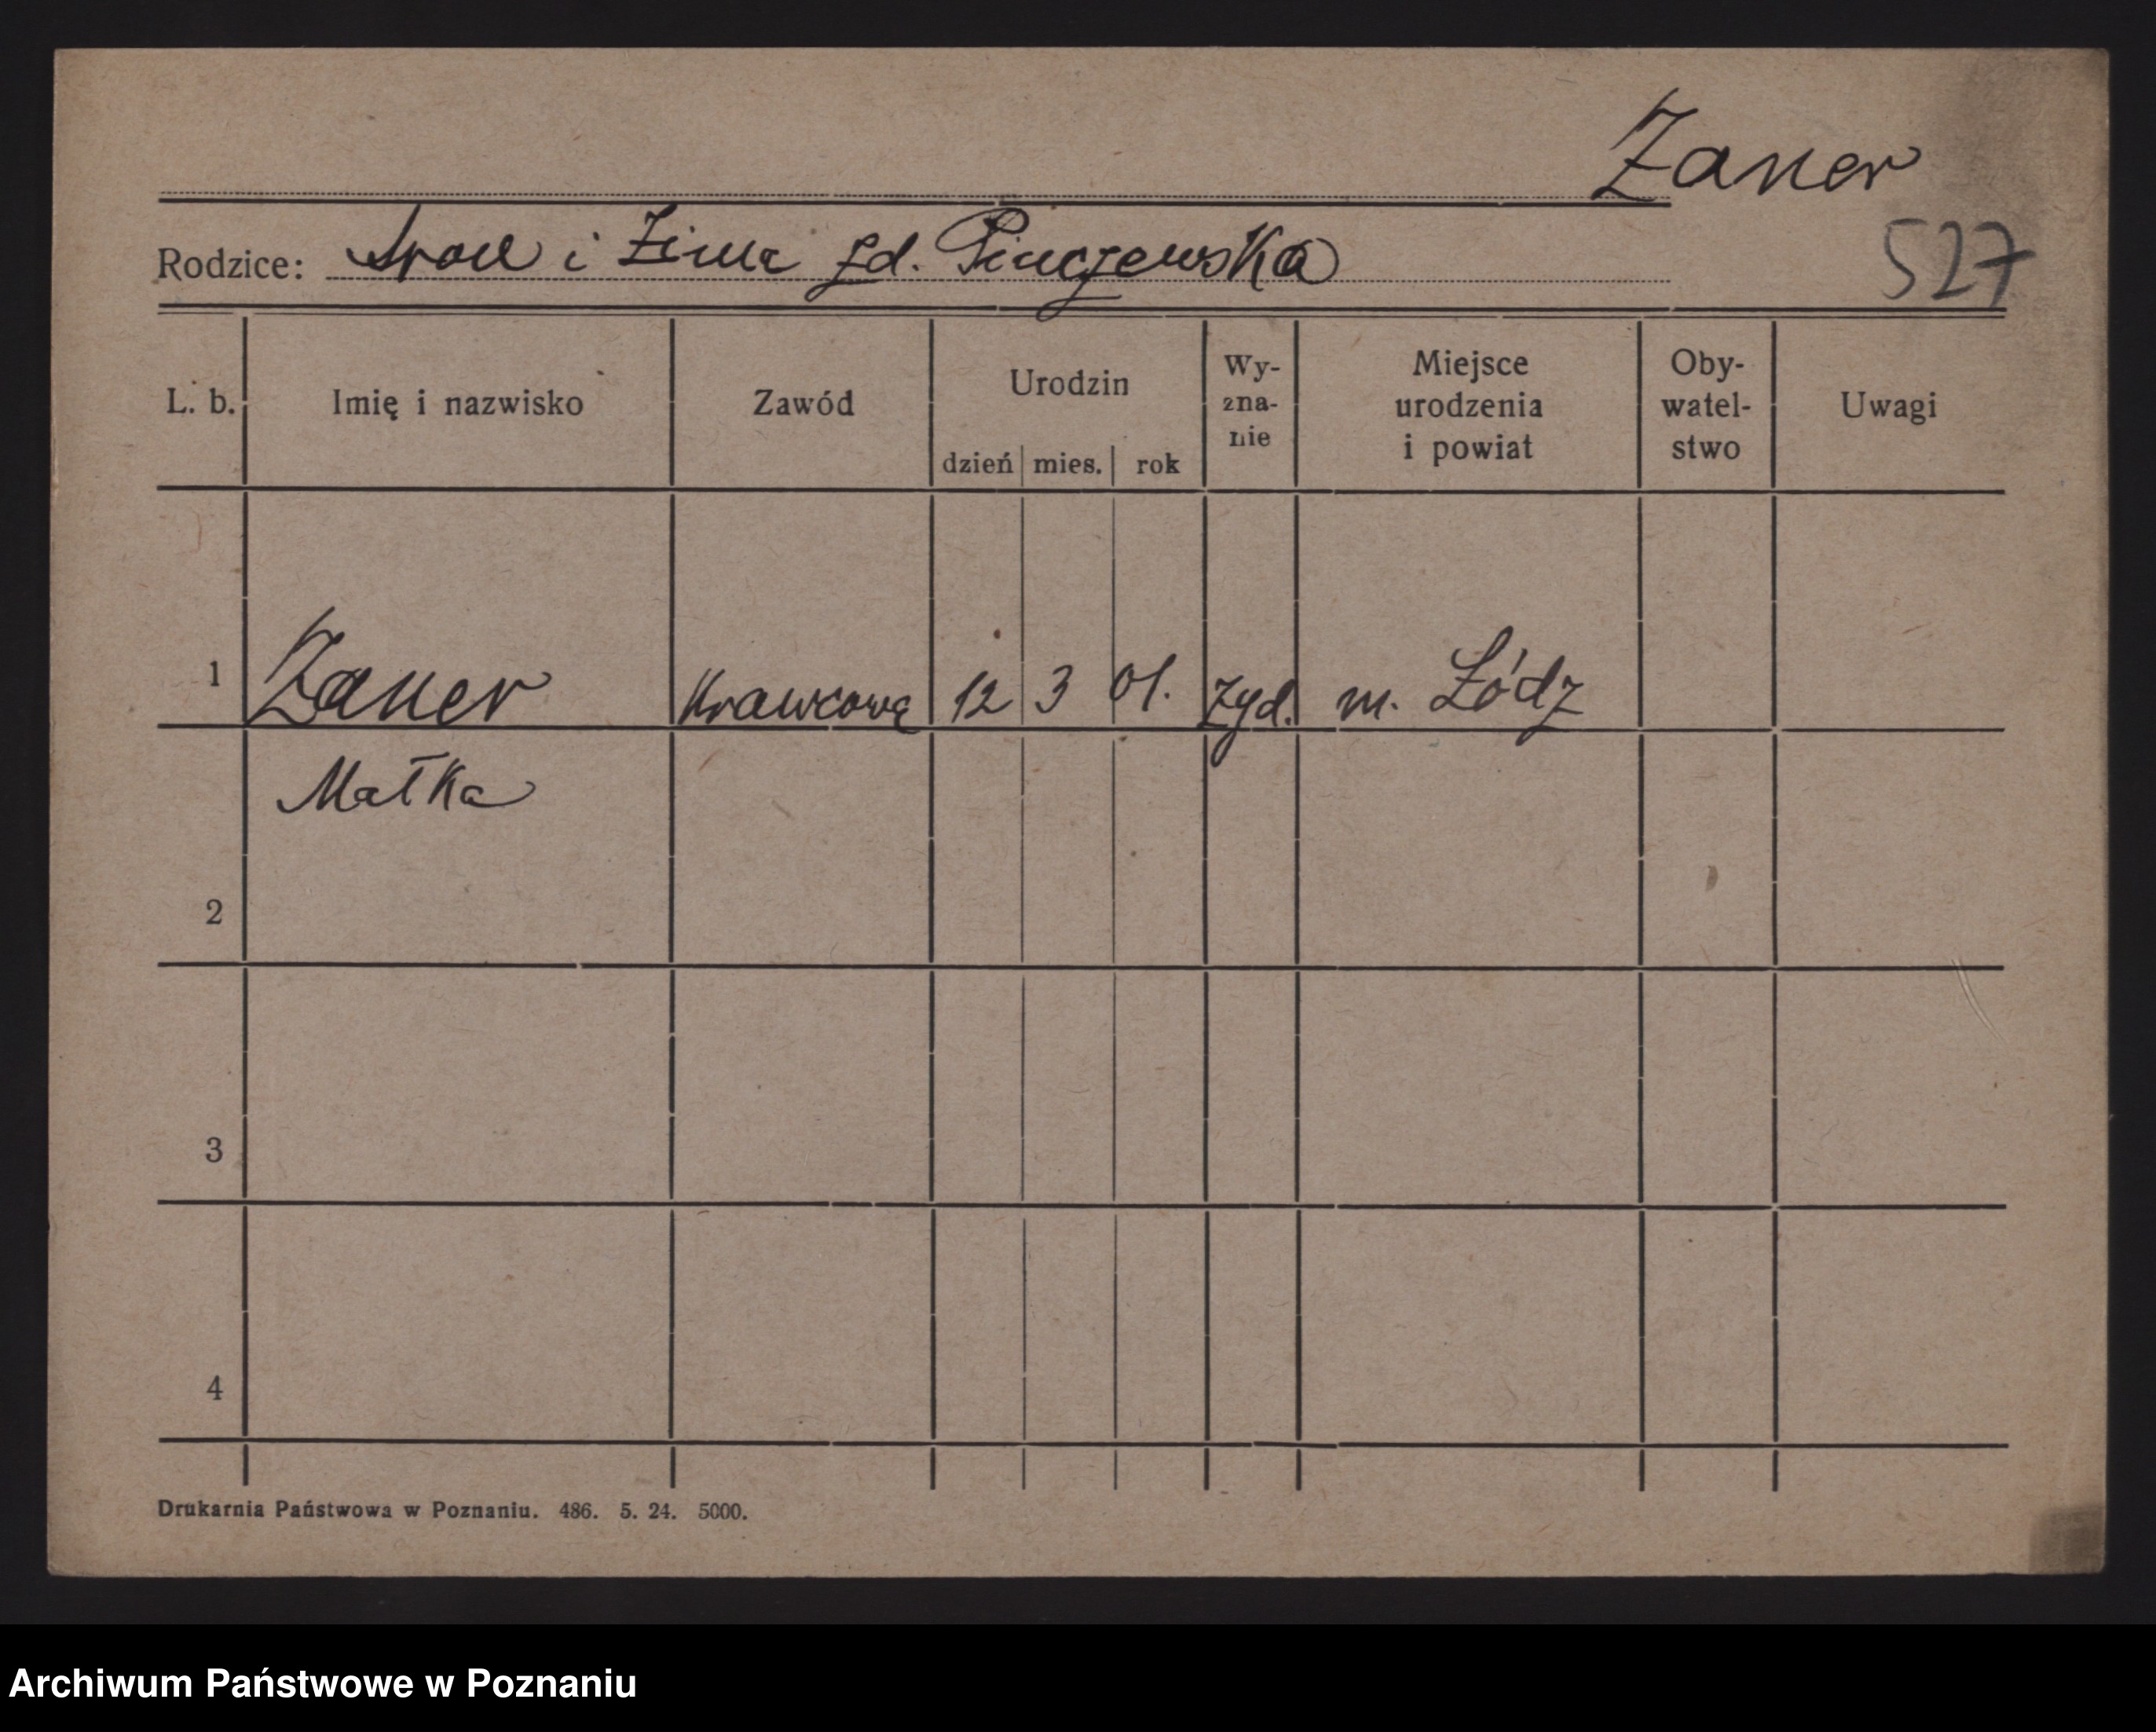 Zaner
Rodzice: Aron i Zima zd. Pinczewska
527
L. b. Imię i nazwisko Zawód Urodzin dzień mies. rok Wy-zna-nie Miejsce urodzenia i powiat Oby-watel-stwo Uwagi
1 Zaner Krawcowa 12 3 01. żyd. m. Łódz
Małka
2
3
4
Drukarnia Państwowa w Poznaniu. 486. 5. 24. 5000.
Archiwum Państwowe w Poznaniu